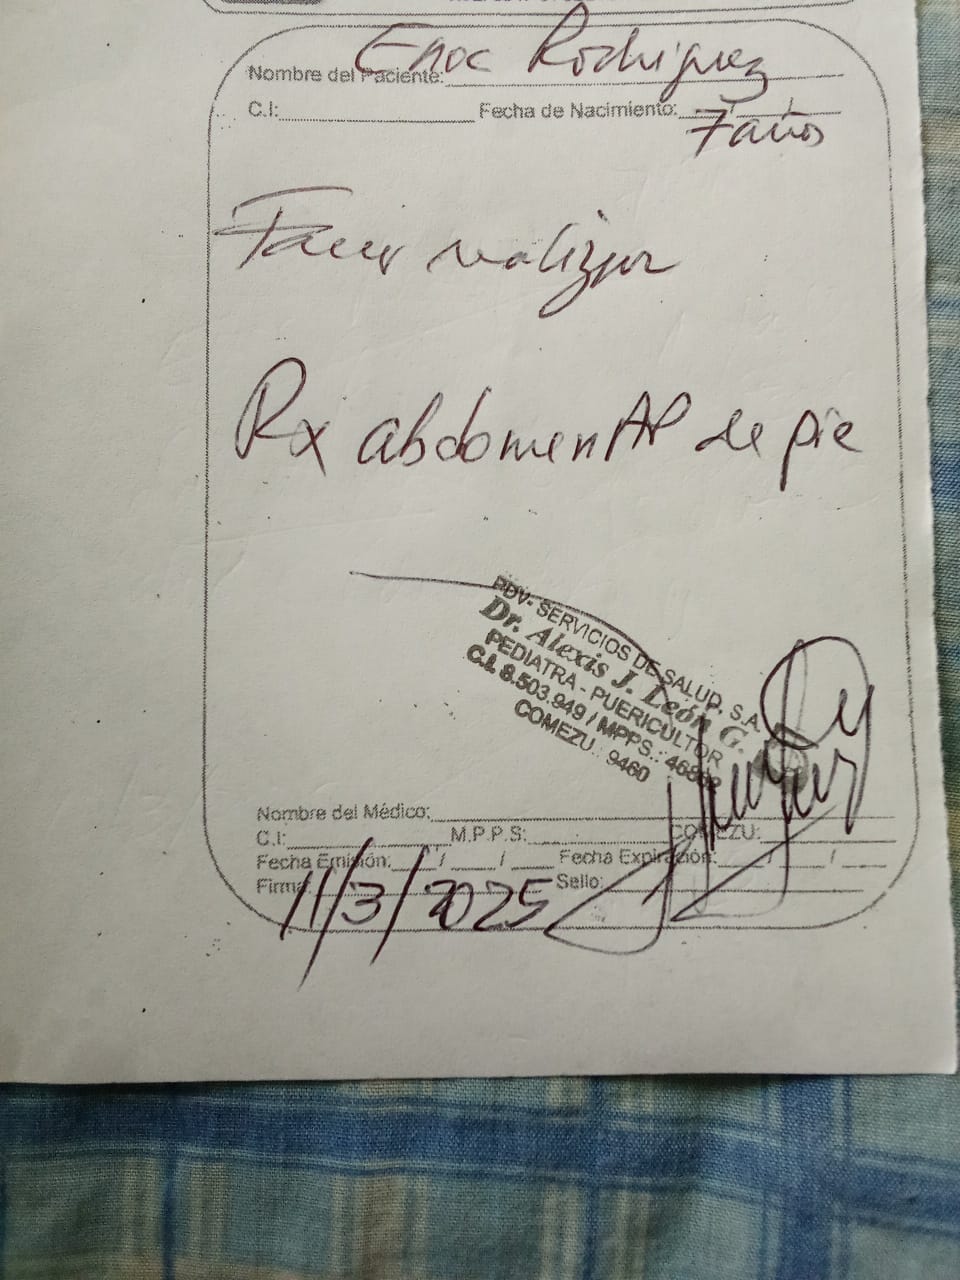 Enoc Rodriguez
Nombre del Paciente:
C.I: Fecha de Nacimiento: / /
7 años
Favor realizar
Rx abdomen AP de pie
PDV- SERVICIOS DE SALUD, S.A.
Dr. Alexis J. León G.
PEDIATRA - PUERICULTOR
C.I. 8.503.949 / MPPS.:
COMEZU.: 9460
Nombre del Médico:
C.I: M.P.P.S: COMEZU:
Fecha Emisión: / / Fecha Expiración: / /
Firma: Sello:
11/3/2025